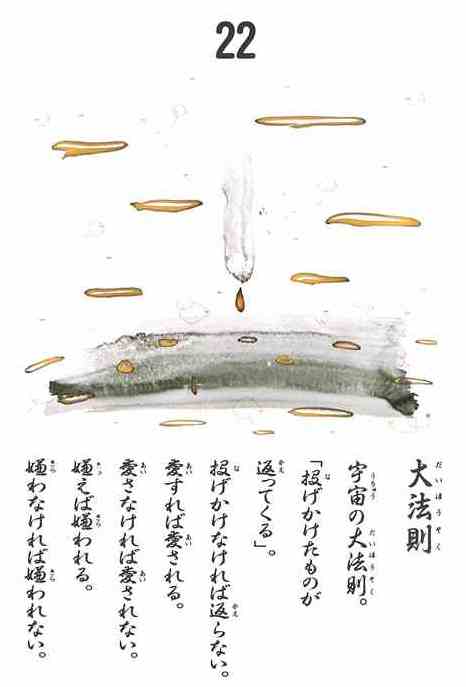 22
大法則
宇宙の大法則。
「投げかけたものが
返ってくる」。
投げかけなければ返らない。
愛すれば愛される。
愛さなければ愛されない。
嫌えば嫌われる。
嫌わなければ嫌われない。